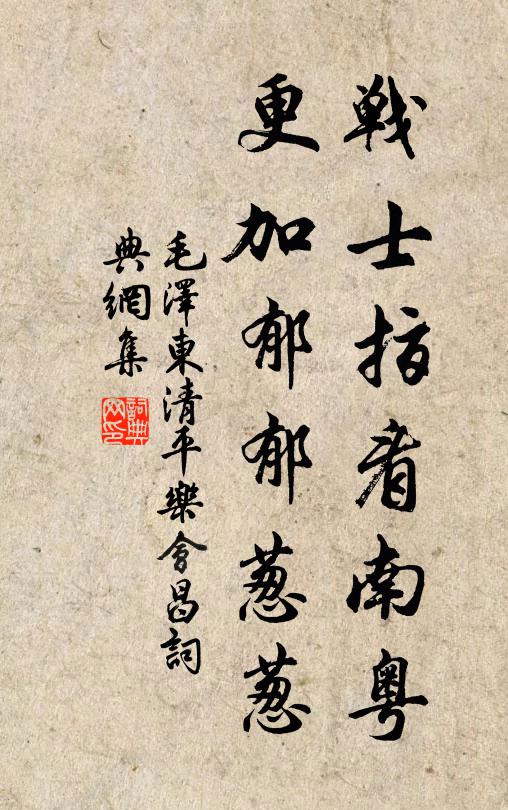 戦士指看南粤
更加郁郁葱葱
毛澤東清平樂會昌詞
典網集
詞典
网印